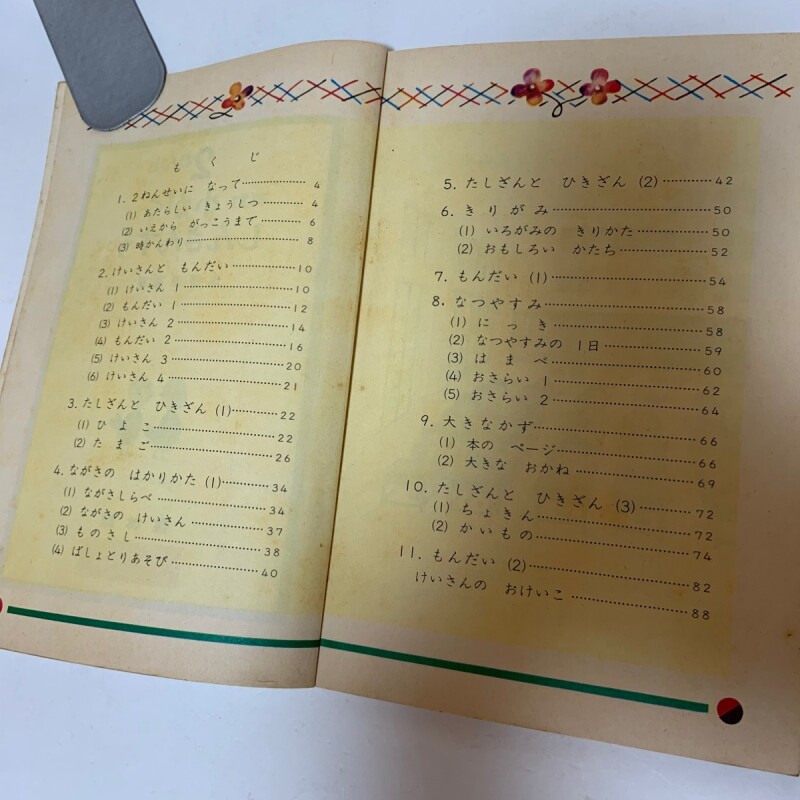 もくじ
1. 2ねんせいに なって……………… 4
(1) あたらしい きょうしつ………… 4
(2) いえから がっこうまで………… 6
(3) 時かんわり……………………… 8
2. けいさんと もんだい……………10
(1) けいさん 1……………………10
(2) もんだい 1……………………12
(3) けいさん 2……………………14
(4) もんだい 2……………………16
(5) けいさん 3……………………20
(6) けいさん 4……………………21
3. たしざんと ひきざん (1)…………22
(1) ひよこ…………………………22
(2) たまご…………………………26
4. ながさの はかりかた (1)…………34
(1) ながさしらべ…………………34
(2) ながさの けいさん……………37
(3) ものさし………………………38
(4) ばしょとりあそび……………40
5. たしざんと ひきざん (2)…………42
6. きりがみ…………………………50
(1) いろがみの きりかた…………50
(2) おもしろい かたち……………52
7. もんだい (1)……………………54
8. なつやすみ………………………58
(1) にっき…………………………58
(2) なつやすみの 1日……………59
(3) はまべ…………………………60
(4) おさらい 1……………………62
(5) おさらい 2……………………64
9. 大きなかず………………………66
(1) 本の ページ……………………66
(2) 大きな おかね…………………69
10. たしざんと ひきざん (3)………72
(1) ちょきん………………………72
(2) かいもの………………………74
11. もんだい (2)……………………82
けいさんの おけいこ………………88